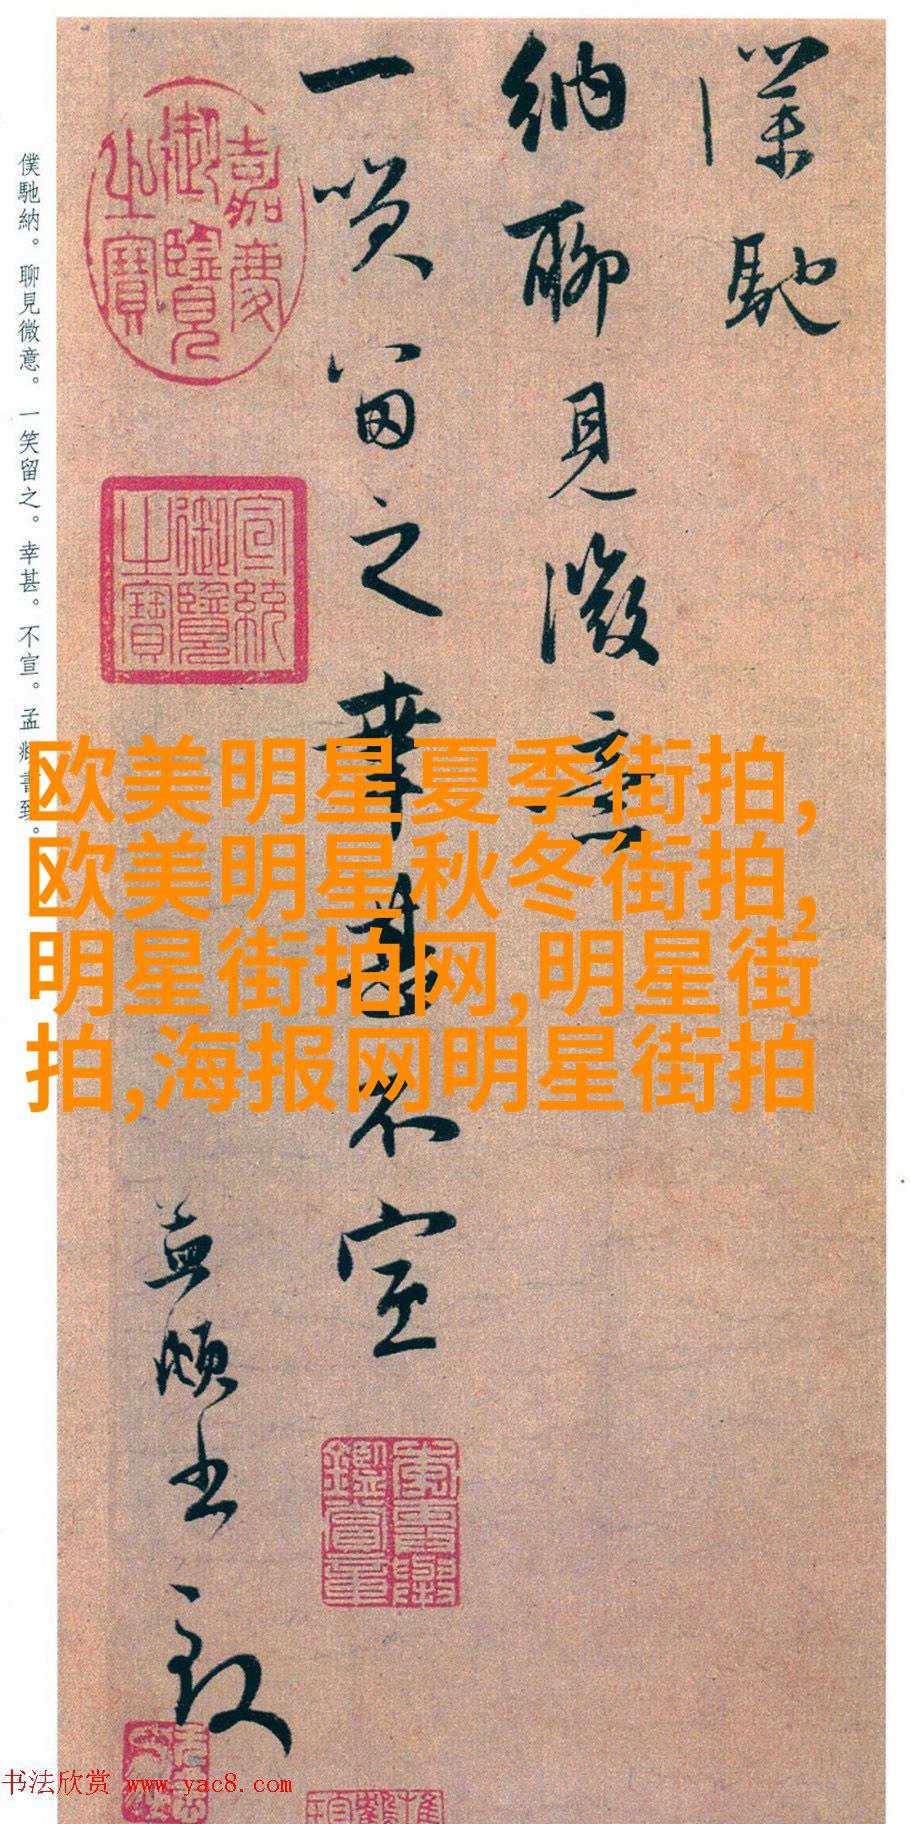 僕馳
納聊見微意
一笑留之幸甚不宣
孟頫書致
嘉慶
御覽
之寶
宣統
御覽
之寶
僕馳納。聊見微意。一笑留之。幸甚。不宣。孟頫書致。
欧美明星夏季街拍,
欧美明星秋冬街拍,
明星街拍网,明星街
拍,海报网明星街拍
书法欣赏 www.yac8.com